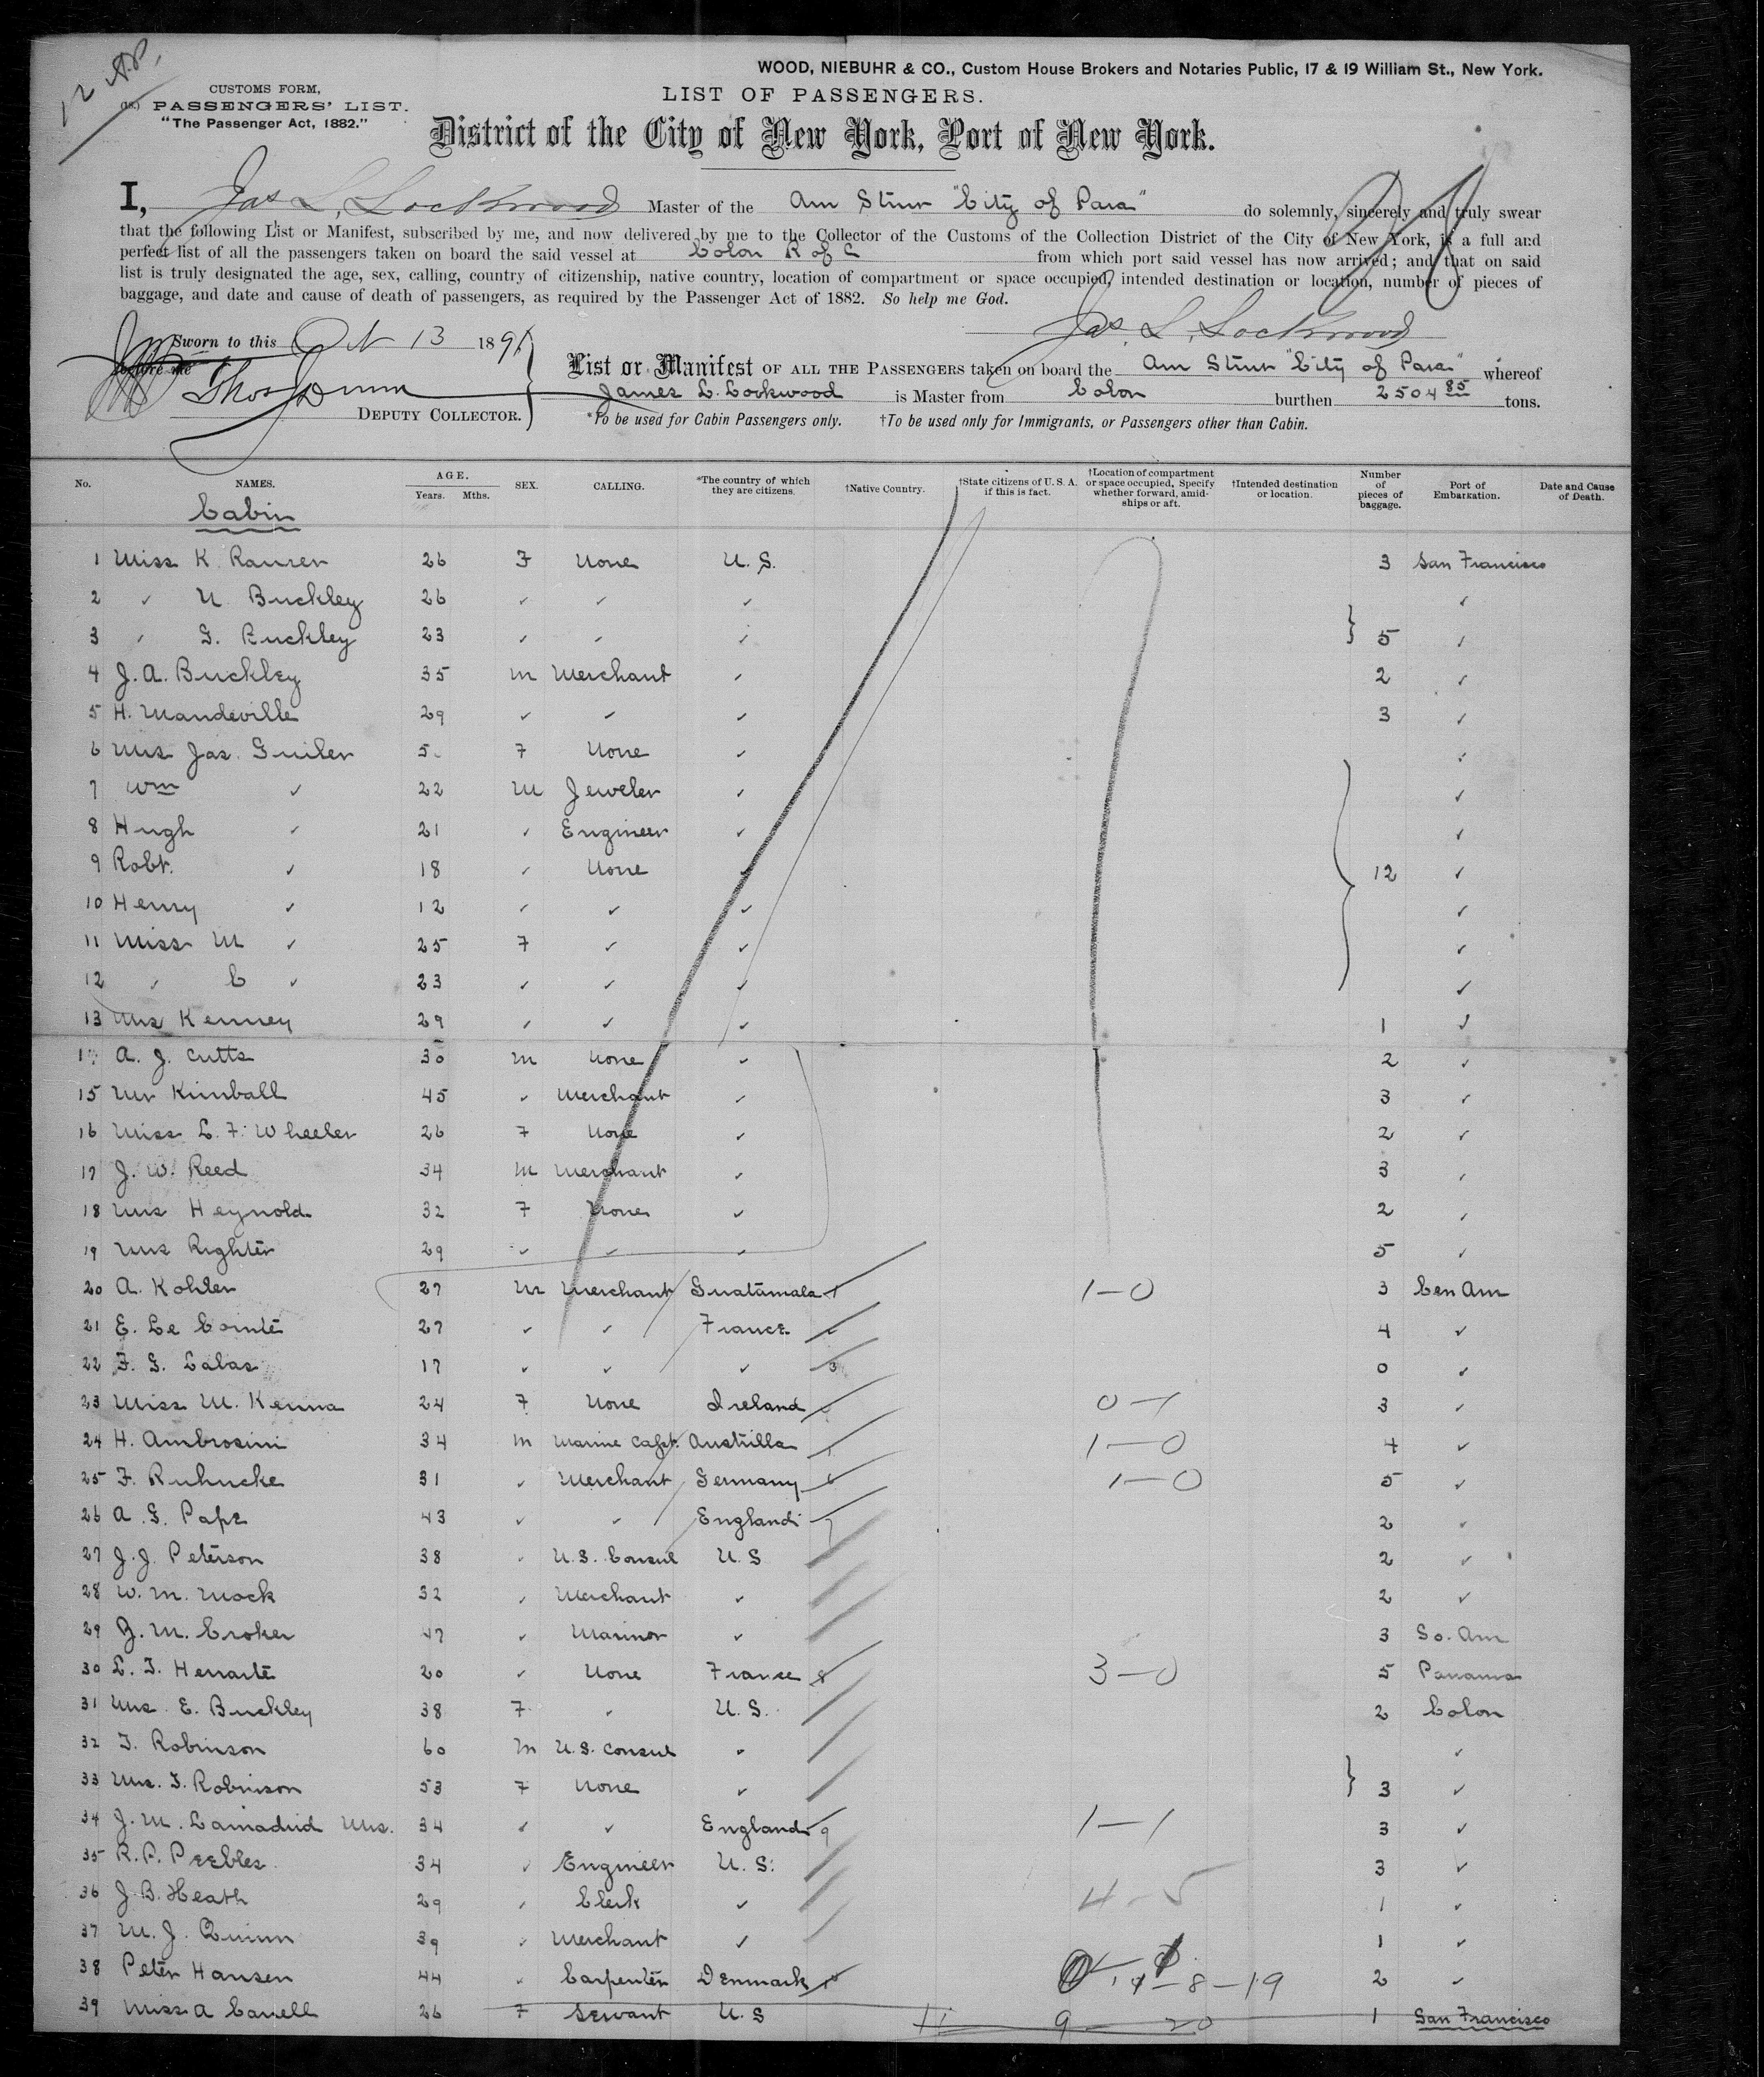 12 
WOOD, NIEBUHR & CO., Custom House Brokers and Notaries Public, 17 & 19 William St., New York.
CUSTOMS FORM,
PASSENGERS' LIST.
"The Passenger Act, 1882."
LIST OF PASSENGERS.
District of the City of New York, Port of New York.
I, Jas L. Lockwood Master of the Am Stmr "City of Para" do solemnly, sincerely and truly swear
that the following List or Manifest, subscribed by me, and now delivered by me to the Collector of the Customs of the Collection District of the City of New York, is a full and
perfect list of all the passengers taken on board the said vessel at Colon R of C from which port said vessel has now arrived; and that on said
list is truly designated the age, sex, calling, country of citizenship, native country, location of compartment or space occupied, intended destination or location, number of pieces of
baggage, and date and cause of death of passengers, as required by the Passenger Act of 1882. So help me God.
Jas. L. Lockwood
Sworn to this Oct 13 1891
before me
Thos Dunn
DEPUTY COLLECTOR.
List or Manifest OF ALL THE PASSENGERS taken on board the Am Stmr "City of Para" whereof
James L. Lockwood is Master from Colon burthen 2504 85 tons.
*To be used for Cabin Passengers only. †To be used only for Immigrants, or Passengers other than Cabin.
No. NAMES. AGE. Years. Mths. SEX. CALLING. *The country of which they are citizens. †Native Country. †State citizens of U. S. A. if this is fact. †Location of compartment or space occupied, Specify whether forward, amidships or aft. †Intended destination or location. Number of pieces of baggage. Port of Embarkation. Date and Cause of Death.
Cabin
1 Miss K. 26 F None U. S. 3 San Francisco
2 ✓ N. Buckley 26 ✓ ✓ ✓ ✓
3 ✓ G. Buckley 23 ✓ ✓ ✓ 5 ✓
4 J. A. Buckley 35 M Merchant ✓ 2 ✓
5 H. Mandeville 29 ✓ ✓ ✓ 3 ✓
6 Mrs Jas. Guiler 5 F None ✓ ✓
7 Wm ✓ 22 M Jeweler ✓ ✓
8 Hugh ✓ 21 ✓ Engineer ✓ ✓
9 Robt. ✓ 18 ✓ None ✓ 12 ✓
10 Henry ✓ 12 ✓ ✓ ✓ ✓
11 Miss M ✓ 25 F ✓ ✓ ✓
12 ✓ C ✓ 23 ✓ ✓ ✓ ✓
13 Mrs Kenney 29 ✓ ✓ ✓ 1 ✓
14 A. J. Cutts 30 M None ✓ 2 ✓
15 Mr Kimball 45 ✓ Merchant ✓ 3 ✓
16 Miss L. F. Wheeler 26 F None ✓ 2 ✓
17 J. W. Reed 34 M Merchant ✓ 3 ✓
18 Mrs Heynold 32 F None ✓ 2 ✓
19 Mrs Righter 29 ✓ ✓ ✓ 5 ✓
20 A. Kohler 27 M Merchant Guatamala 1 1-0 3 Cen Am
21 E. Le Comte 27 ✓ ✓ France 4 ✓
22 F. G. Lalas 17 ✓ ✓ ✓ 3 0 ✓
23 Miss M. Kenna 24 F None Ireland 0-1 3 ✓
24 H. Ambrosini 34 M Marine Capt. Austrilla 1-0 4 ✓
25 F. Ruhncke 31 ✓ Merchant Germany 6 1-0 5 ✓
26 A. G. Pape 43 ✓ ✓ England 7 2 ✓
27 J. J. Peterson 38 ✓ U. S. Consul U. S 2 ✓
28 W. M. Mock 32 ✓ Merchant ✓ 2 ✓
29 J. M. Croker 47 ✓ Marinor ✓ 3 So. Am
30 L. T. Herrarte 20 ✓ None France 8 3-0 5 Panama
31 Mrs. E. Buckley 38 F ✓ U. S. 2 Colon
32 T. Robinson 60 M U. S. Consul ✓ ✓
33 Mrs. T. Robinson 53 F None ✓ 3 ✓
34 J. M. Lamadrid Mrs. 34 ✓ ✓ England 9 1-1 3 ✓
35 R. P. Peebles 34 ✓ Engineer U. S. 3 ✓
36 J. B. Heath 29 ✓ Clerk ✓ 4-5 1 ✓
37 M. J. Quinn 39 ✓ Merchant ✓ 1 ✓
38 Peter Hansen 44 ✓ Carpenter Denmark 10 8-19 2 ✓
39 Miss A Canell 26 F Servant U. S 11 9 20 1 San Francisco